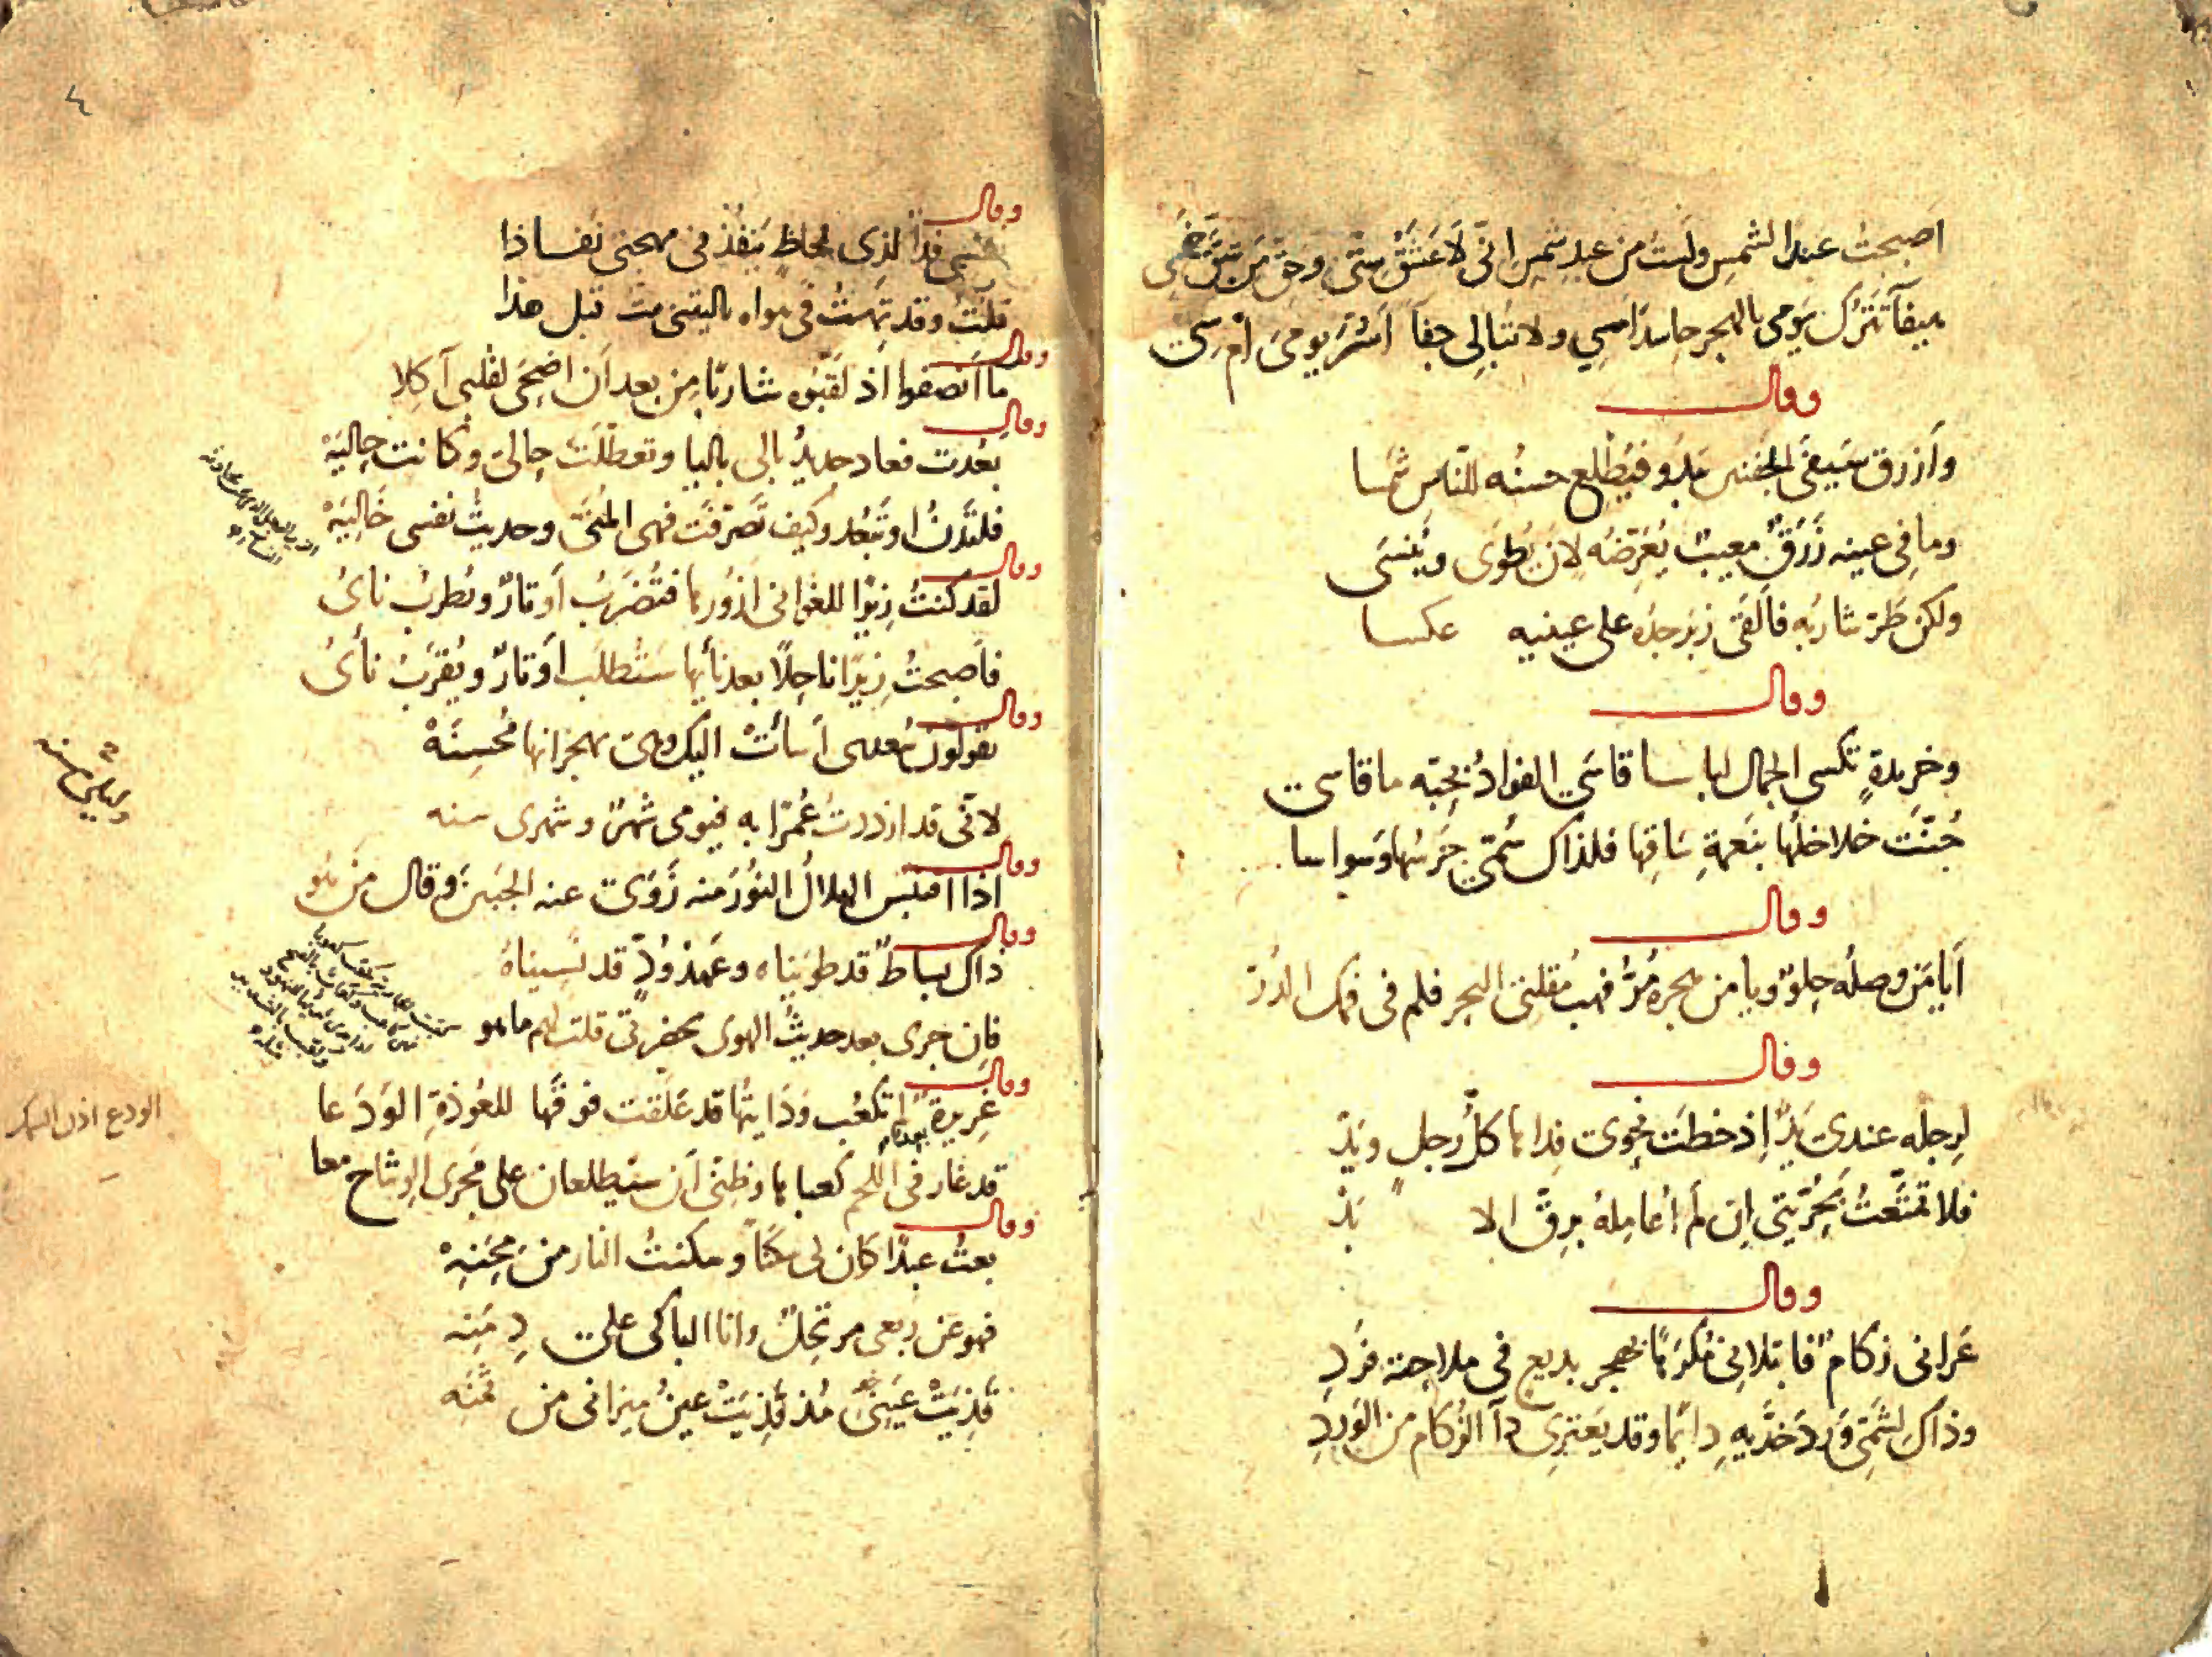 اصبحتُ عبد الشمس ولستُ من عبد شمس اني لاعشق ستّي وحقّ من شقّ خمسي
هيفآ تترك يومي بالهجر حاسدَ امسي ولا تبالي جفآ أسُرّ يومي ام سي
وقال
وأزرق سيفيّ الجفنين يبدو فيُطلع حسنُه للناس شمسا
وما في عينه زَرَقٌ معيبٌ يُعَرّضه لان يُطوَى ويُنسَى
ولكن طَرّ شاربُه فألقَى زبرجدُه على عينيه عكسا
وقال
وخريدةٍ تكسى الجمال لباسا قاسَى الفوادُ بحبّه ما قاسى
جُنّت خلاخلها بنَعمةِ ساقِها فلذاك سُمّي جَرسُها وَسواسا
وقال
أيا مَن وصلُه حلوٌ ويا من هجره مُرُّ فهبْ مُقلتيَ البحر فلم في فمك الدُرّ
وقال
لرجله عندي يَدٌ إذ خطَت نحوي فداها كلُّ رجلٍ ويَدْ
فلا تمتّعتُ بحُرّيتي إن لم أُعامِلهُ برِقّ الا بَدْ
وقال
عَراني زكامٌ فابتلاني مُكرَهًا بهجر بديع في ملاحته فَردِ
وذاك لشمّي وَردَ خدَّيهِ دائما وقد يَعتري دآ الزكام من الوَردِ
٤
وقال
نفسي فدا لذي لحاظٍ ينفذ في مهجتي نفاذا
قلتُ وقد تِهتُ في هواه ياليتني متّ قبل هذا
وقال
ما أنصفوا اذ لقّبوه شاربًا من بعد أن اضحَى لقلبي آكلا
وقال
بعُدت فعاد جديدُ بالي باليا وتعطّلَت حالي وكانت حاليَهْ
فلتَدنُ او تَبعُد وكيف تصرّفَت فهي المُنَى وحديثُ نفسي خاليَهْ
وقال
لقد كنتُ زيرًا للغواني ازُورها فتُضرَبُ أوتارٌ ويُطرِبُ نايُ
فأصبحتُ زيرًا ناحلًا بعد نأيها ستُطلَب أوتارٌ ويُقرَبُ نأيُ
وقال
يقولون سُعدى أسأتْ اليك وهي بهجرانها مُحسِنَهْ
لانّي قد ازددتُ عُمرًا به فيومي شهرٌ وشهري سنه
وقال
اذا اقتبس الهلالُ النورَ منه زَوَى عنه الجبينَ وقال مَن هُو
وقال
ذاك بساطٌ قد طويناه وعهدُ وُدٍّ قد نسيناهُ
فإن جرى بعد حديثُ الهوى بحضرتي قلت لهم ما هو
وقال
غريرةٌ لم تكعُب وَدَايتُها قد علّقت فوقَها للعُوذةِ الوَدَعا
قد غار في اللحم كعباها وظنّي أن سيطلعان على مَجرَى الوشاح معا
الودع اذن السمكة
وقال
بعتُ عبدًا كان لي سكنًا وسكنتُ النار من محَنِهْ
فهو عن ربعي مرتحلٌ وانا الباكي على دِمَنِه
قذِيَتْ عَيني مُذ قذِيَتْ عينُ ميزاني من ثمنِه